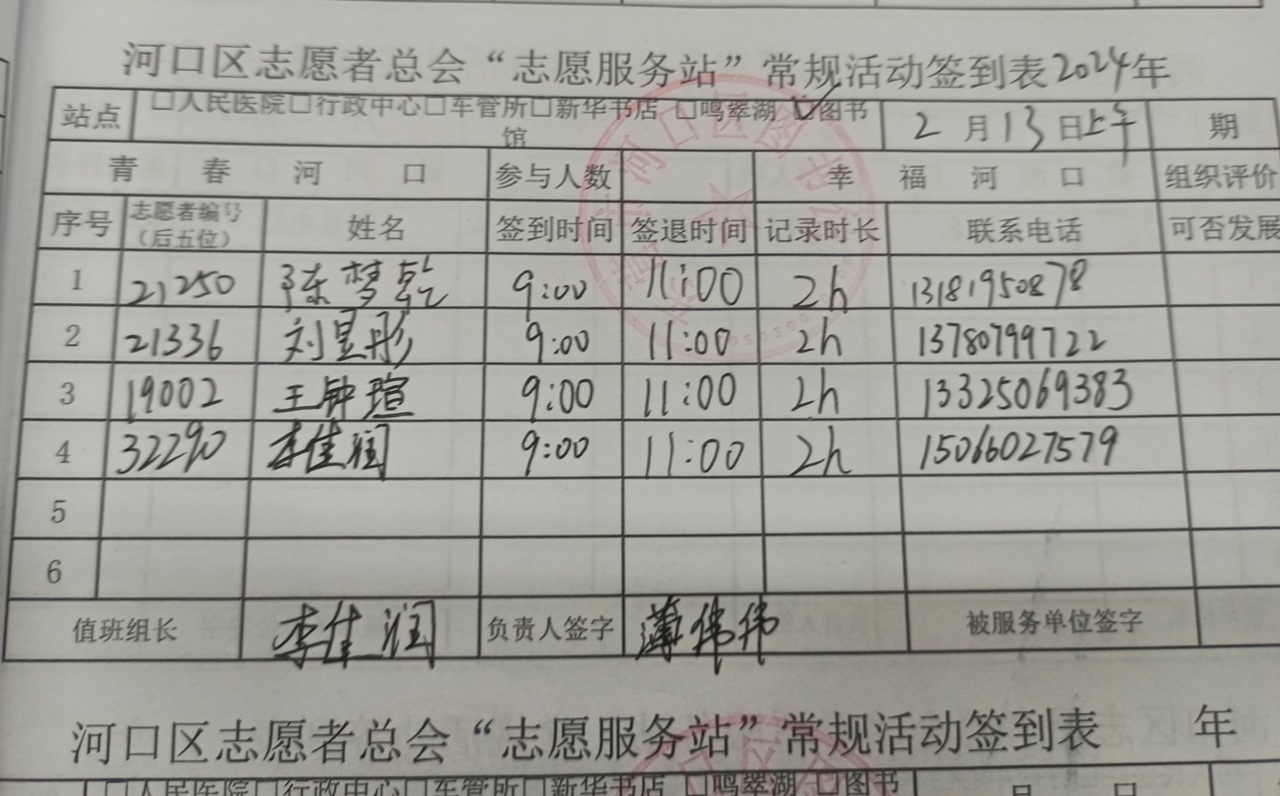 河口区志愿者总会“志愿服务站”常规活动签到表2024年
站点 □人民医院□行政中心□车管所□新华书店 □鸣翠湖 ☑图书馆 2月13日上午 期
青春河口 参与人数 幸福河口 组织评价
序号 志愿者编号（后五位） 姓名 签到时间 签退时间 记录时长 联系电话 可否发展
1 21250 陈梦乾 9:00 11:00 2h 13181950878
2 21336 刘昱彤 9:00 11:00 2h 13780799722
3 19002 王钟瑄 9:00 11:00 2h 13325069383
4 32290 李佳润 9:00 11:00 2h 15066027579
5
6
值班组长 李佳润 负责人签字 薄伟伟 被服务单位签字
河口区志愿者总会“志愿服务站”常规活动签到表 年
□人民医院□行政中心□车管所□新华书店 □鸣翠湖 □图书 月 日